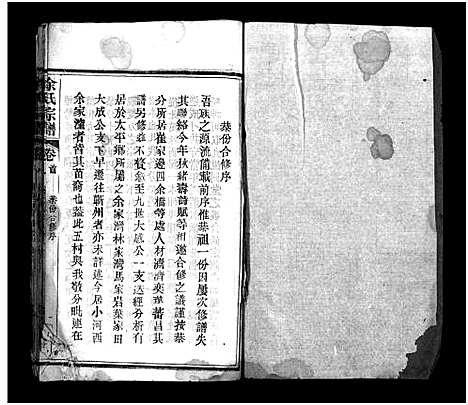 恭份合修序
吾族之源流備載前序惟恭祖一份因屢次修譜失
其聯絡今年秋緒壽首賦等相商合修之議謹按恭
分所居崔家邊四余橋等處人材濟濟奕葉蕃昌其
譜另修並不贅叙至九世大感公一支送經分析有
居於太平鄉所屬之余家灣林家灣馬家岩葉家田
大成公支下早遷往蘄州者亦未詳述今居小河西
余家灣者皆其苗裔也蓋此五村與我敬分毗連在
余氏宗譜
卷首
恭份合修序